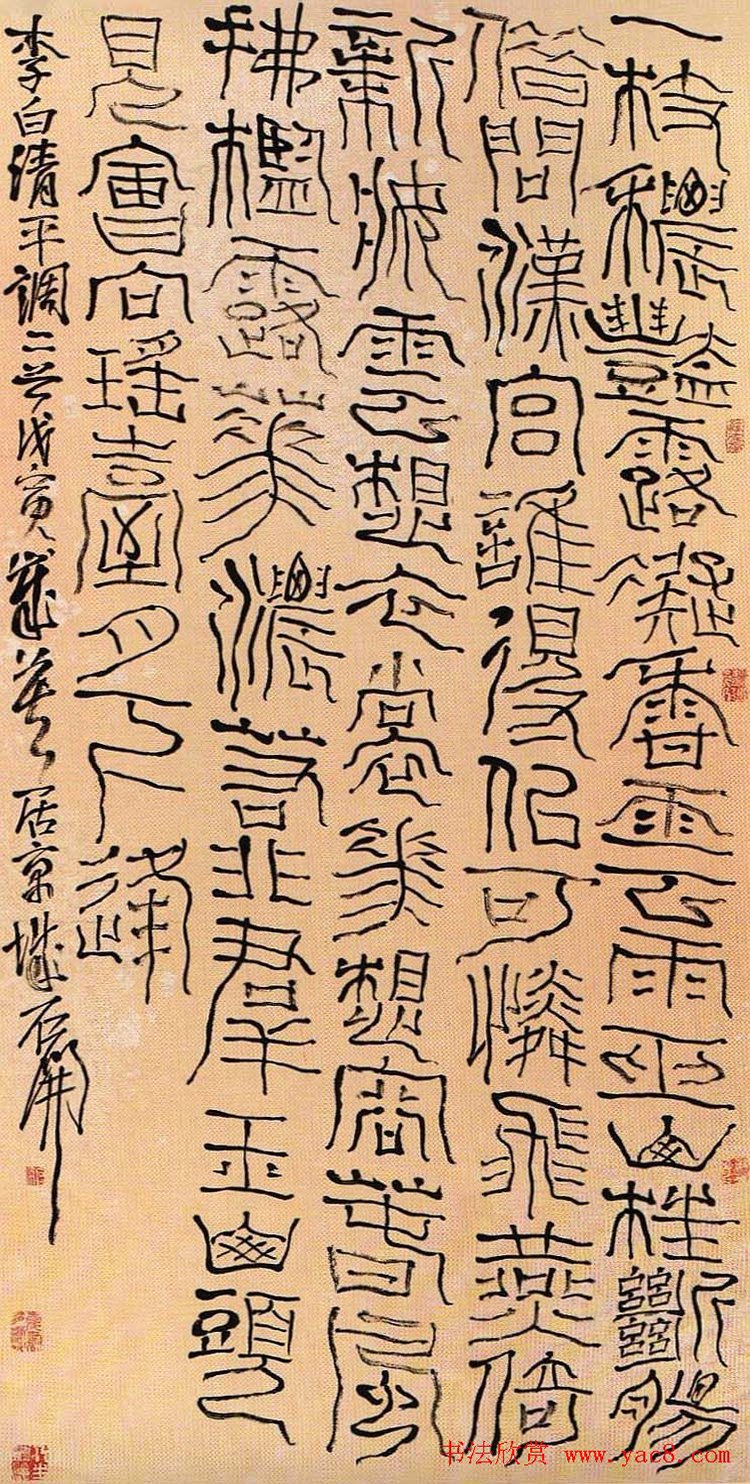 一枝穠豔露凝香雲雨巫山枉斷腸
借問漢宮誰得似可憐飛燕倚
新妝雲想衣裳花想容春風
拂檻露華濃若非群玉山頭
見會向瑤臺月下逢
李白清平調二首戊寅歲暮居京城石開
书法欣赏 www.yac8.com